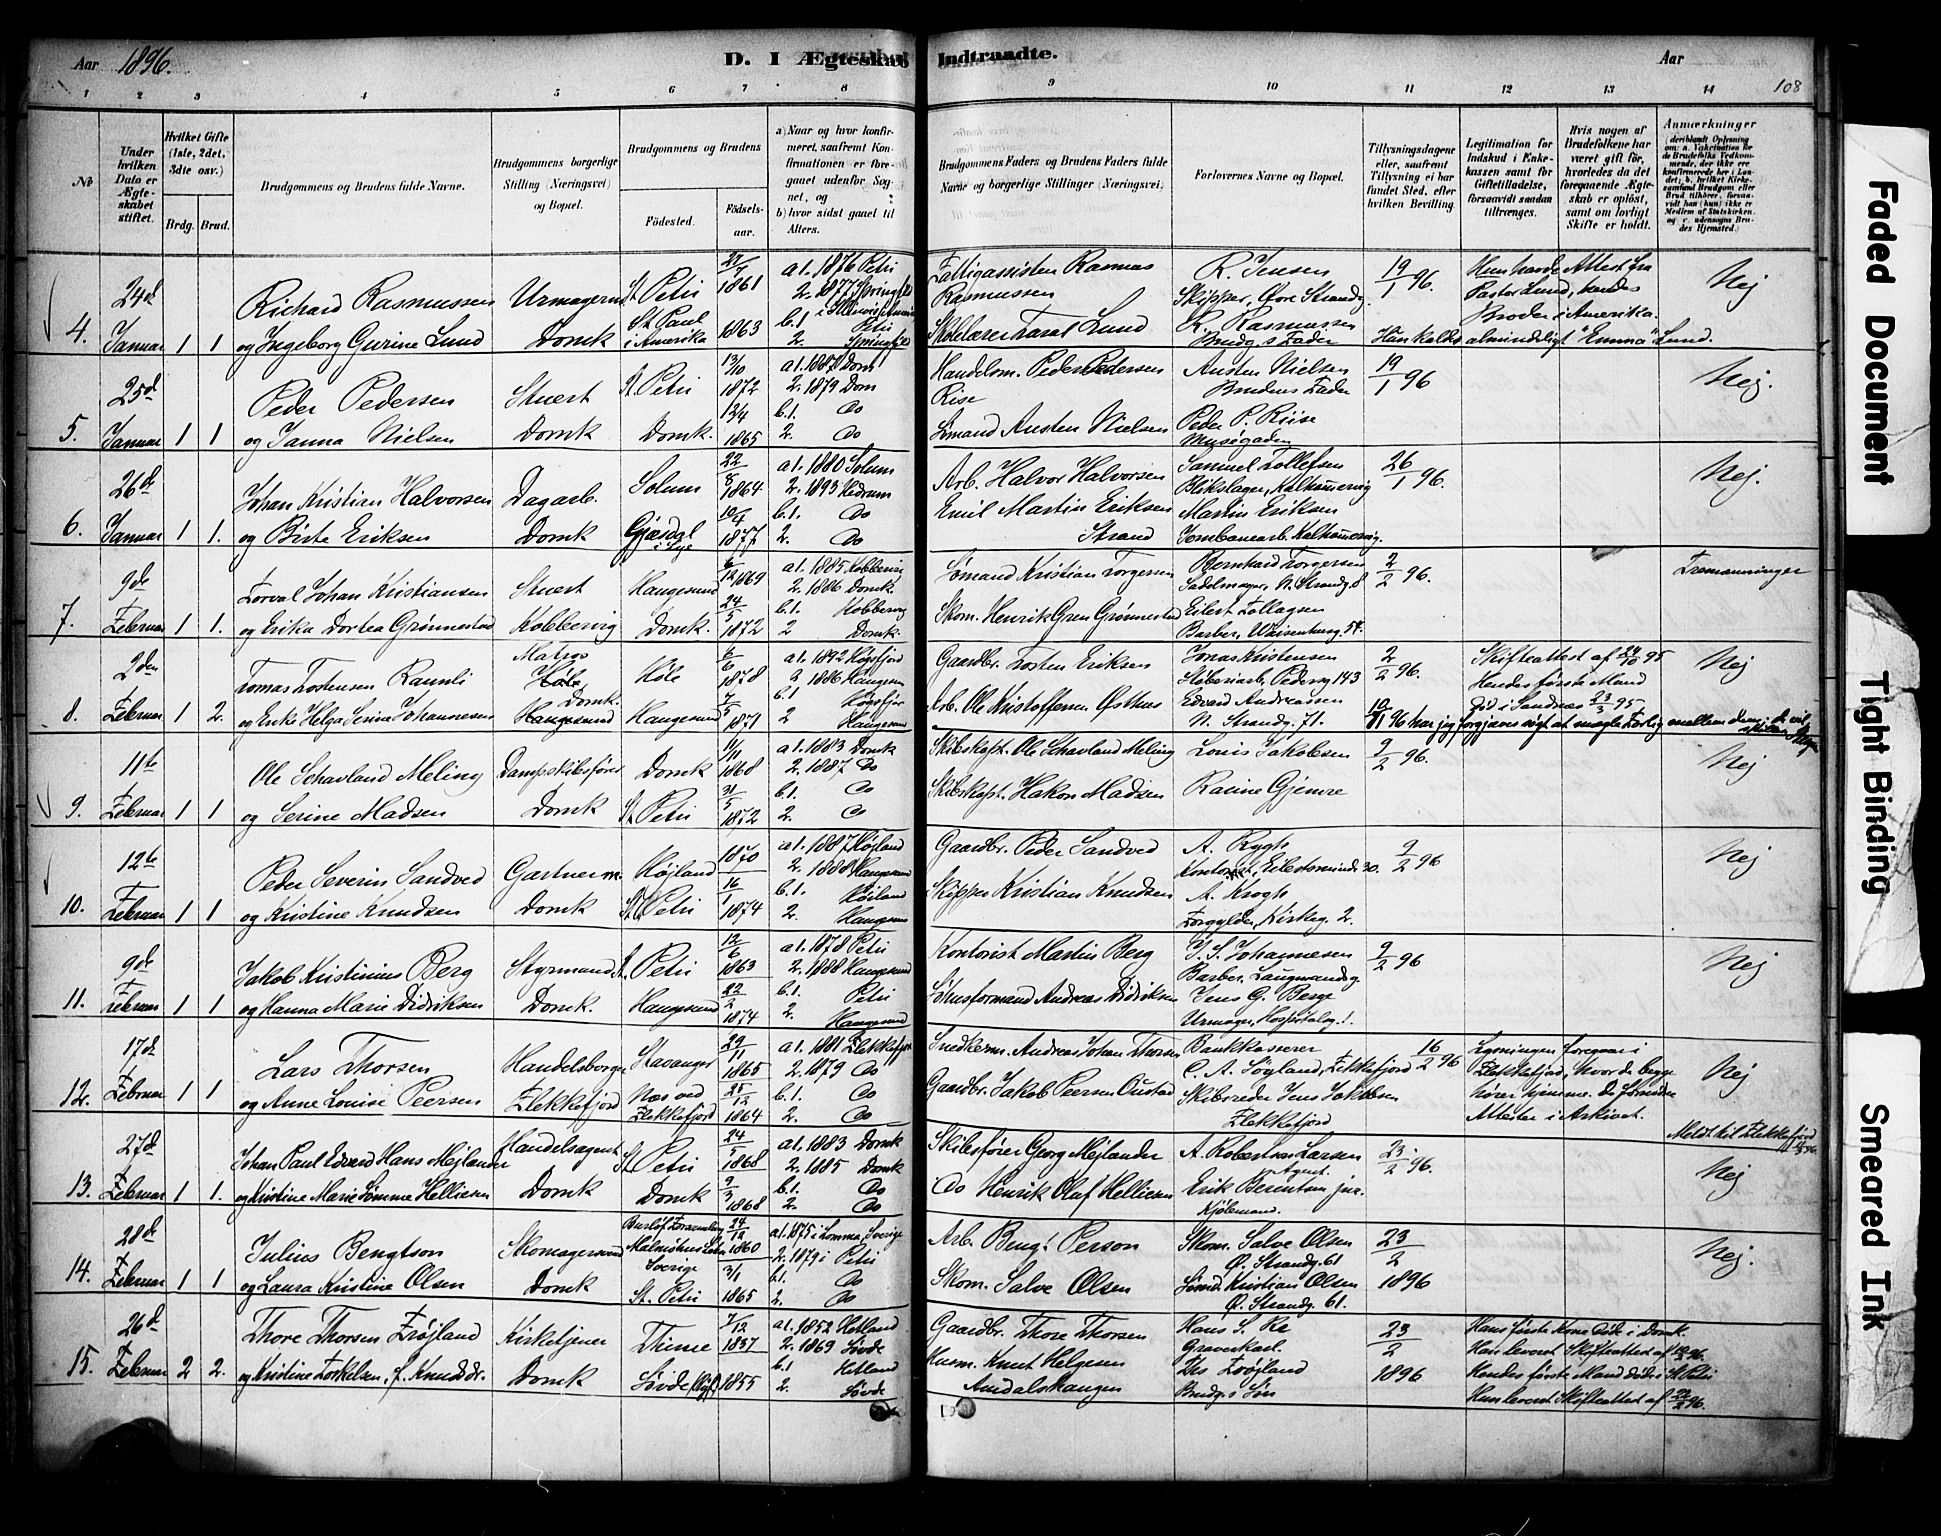 Aar 1896.
D. I Ægteskab Indtraadte.
Aar
108
1 2 3 4 5 6 7 8 9 10 11 12 13 14
No
Under hvilken Dato er Ægteskabet stiftet.
Hvilket Gifte (1ste, 2det, 3die osv.)
Brdg. Brud.
Brudgommens og Brudens fulde Navne.
Brudgommens borgerlige Stilling (Næringsvei) og Bopæl.
Brudgommens og Brudens
Födested.
Födselsaar.
a) Naar og hvor konfirmeret, saafremt Konfirmationen er foregaaet udenfor Sognet, og
b) hvor sidst gaael til Alters.
Brudgommens Faders og Brudens Faders fulde Navne og borgerlige Stillinger (Næringsvei)
Forlovernes Navne og Bopæl.
Tillysningsdagene eller, saafremt Tillysning ei har fundet Sted, efter hvilken Bevilling.
Legitimation for Indskud i Enkekassen samt for Giftetilladelse, forsaavidt saadan tiltrænges.
Hvis nogen af Brudefolkene har været gift før, hvorledes da det foregaaende Ægteskab er oplöst, samt om lovligt Skifte er holdt.
Anmærkninger
4. 24d Januar 1 1
Richard Rasmussen
og Ingeborg Gurine Lund
Urmager
Domk
St Petri
St. Paul i Amerika
27/7 1861
1863
a 1. 1876 Petri
2. 1877
b. 1 Petri
2.
Fattigassistent Rasmus Rasmussen
Skolelærer Lund
R. Jensen
Skipper, Øvre Strandg.
R. Rasmussen
Brudg.s Fader
19/1 96.
Hun havde Attest fra
Pastor Lund, hendes
Broder i Amerika.
Hun kaldes almindeligt "Emma" Lund.
Nej
5. 25d Januar 1 1
Peder Pedersen
og Janna Nielsen
Stuert
Domk
St. Petri
Domk.
13/10 1872
12/4 1865
a 1. 1887 Dom
2. 1879 Dom
b. 1. Do
2. Do
Handelsm. Peder Pedersen
Rise
Sømand Austen Nielsen
Austen Nielsen
Brudens Fader
Peder P. Riise
Muségaden
19/1 96
Nej.
6. 26d Januar 1 1.
Johan Kristian Halvorsen
og Birte Eriksen
Dagarb.
Domk
Solum
Gjæsdal
22/8 1864
10/4 1877
a 1. 1880 Solum
2. 1893 Hedrum
b. 1. Do
2. Do
Arb. Halvor Halvorsen
Emil Martin Eriksen
Strand
Samuel Tollefsen
Blikslager, Kalhammervig
Martin Eriksen
Jernbanearb. Kalhammervig.
26/1 96.
Nej.
7. 9de Februar 1 1.
Torval Johan Kristiansen
og Erika Dortea Grønnestad
Stuert
Kobbervig
Haugesund
Domk.
6/12 1869
24/5 1872
a 1. 1885 Kobbervig
2. 1886 Domk.
b. 1. Kobbervig
2 Domk.
Sømand Kristian Torgersen
Skom. Henrik Gren Grønnestad
Bernhard Torgersen
Sadelmager, N. Strandg. 8
Eilert Tollagsen
Barber, Waisenhusg. 54.
2/2 96.
Tremænninger
8. 9den Februar 1 2.
Tomas Tostensen Raunli
og Enke Helga Serine Johannesen
Matros
Høle
Domk.
Haugesund
Høle
Haugesund
6/6 1878
7/5 1871
a 1. 1892 Høgsfjord
2 1886 Haugesun
b. 1 Høgsfjor
2 Haugesund
Gaardbr. Tosten Eriksen
Arb. Ole Kristoffersen Østhus
Jonas Kristensen
Støberiarb. Pedersg. 143
Edvard Andreassen
N. Strandg. 71.
2/2 96.
Skifteattest af 24/10 95
Hendes første Mand
Død i Sandnæs 23/3 95.
96 har jeg forgjæves søgt at mægle Forlig mellem dem; de vil
Nej
9. 11te Februar 1 1
Ole Schavland Meling
og Serine Madsen
Dampskibsfører
Domk
Domk
St. Petri
1868
31/5 1872
a 1. 1883 Domk
2. 1887 Do
b. 1. Do
2. Do
Skibskapt. Ole Schavland Meling
Skibskapt. Hakon Madsen
Louis Jakobsen
Rasine Gjemre
9/2 96.
Nej
10. 12te Februar 1 1
Peder Severin Sandved
og Kristine Knudsen
Gartnerm.
Domk
Højland
St. Petri
1870
16/1 1874
a 1. 1887 Højland
2. 1888 Haugesund
b. 1. Høiland
2. Haugesun
Gaardbr. Peder Sandved
Skipper Kristian Knudsen
A. Rygh
Kontorist, Eilertsminde 30.
A. Krogh
Forgylder, Kirkeg. 2.
9/2 96
Nej
11. 9de Februar 1 1
Jakob Kristinius Berg
og Hanna Marie Didriksen
Styrmand
Domk.
St. Petri
Haugesund
12/6 1863
22/2 1874
a 1. 1878 Petri
2. 1888 Haugesund
b. 1. Petri
2. Haugesund
Kontorist Martin Berg
Andreas Didriksen
J. S. Johannesen
Barber, Laugmandsg.
Jens G. Berge
Urmager, Hospitalsg. 1.
9/2 96
Nej
12. 17d Februar 1 1
Lars Thorsen
og Anne Louise Peersen
Handelsborger
Flekkefjord
Stavanger
Næs ved Flekkefjord
29/11 1865
25/12 1864
a 1. 1881 Flekkefjord
2. 1879 Do
b. 1. Do
2. Do
Snedkerm. Andreas Johan Thorsen
Gaardbr. Jakob Peersen Oustad
Bankkasserer
C. A. Søyland, Flekkefjord
Skibsreder Jens Jakobsen
Flekkefjord
16/2 96
Lysningen foregaar i
Flekkefjord, hvor de begge
hører hjemme. De fornødne
Attester i Arkivet.
Nej
Meldt til Flekkefjord
13. 27d Februar 1 1.
Johan Paul Edvard Hans Mejlander
og Kristine Marie Sømme Helliesen
Handelsagent
Domk
St. Petri
Domk
24/5 1868
9/3 1868
a 1. 1883 Domk
2. 1885 Domk
b. 1. Do
2. Do
Skibsfører Georg Mejlander
Do Henrik Olaf Helliesen
A. Robertson Larsen
Agent.
Erik Berentsen jnr.
Kjøbmand.
23/2 96.
Nej
14. 28d Februar 1 1
Julius Bengtson
og Laura Kristine Olsen
Skomagersvend
Domk
Burløf Forsamling
Malmøhus Len
Sverige
St. Petri
24/12 1860
3/1 1865
a 1. 1875 i Lomma, Sverige
2. 1879 i Petri
b. 1. Do
2. Do
Arb. Bengt Person
Skom. Salve Olsen
Skom. Salve Olsen
Ø. Strandg. 61
Sømd. Kristian Olsen
Ø. Strandg. 61.
23/2 1896
Nej.
15. 26d Februar 2 2.
Thore Thorsen Frøjland
og Kristine Torkelsen, f. Knudsdr.
Kirketjener
Domk
Thime
Søvde
7/12 1837
1855
a 1. 1852 Hetland
2. 1869 Søvde
b. 1 Hetland
2. Søvde
Gaardbr. Thore Thorsen
Husm. Knut Helgesen
Andalshaugen
Hans S. Re
Graverkarl.
Ths Frøjland
Brudg.s Søn
23/2 1896
Hans første Kone døde i Domk.
Han leveret Skifteattest af
Hendes første Mand døde i St Petri
Hun leveret Skifteattest af 22/2 96.
Faded Document
Tight Binding
Smeared Ink